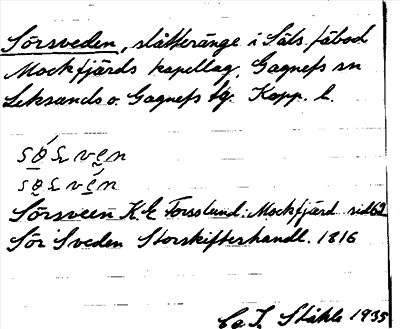 Sörsveden, slåtteränge i Säls fäbod
Mockfjärds kapellag, Gagnefs sn
Leksands o. Gagnefs tg. Kopp. l.
Sörsveen K.E. Forsslund: Mockfjärd sid 62
Sör Sveden Storskifterhandl. 1816
C. I. Ståhle 1935